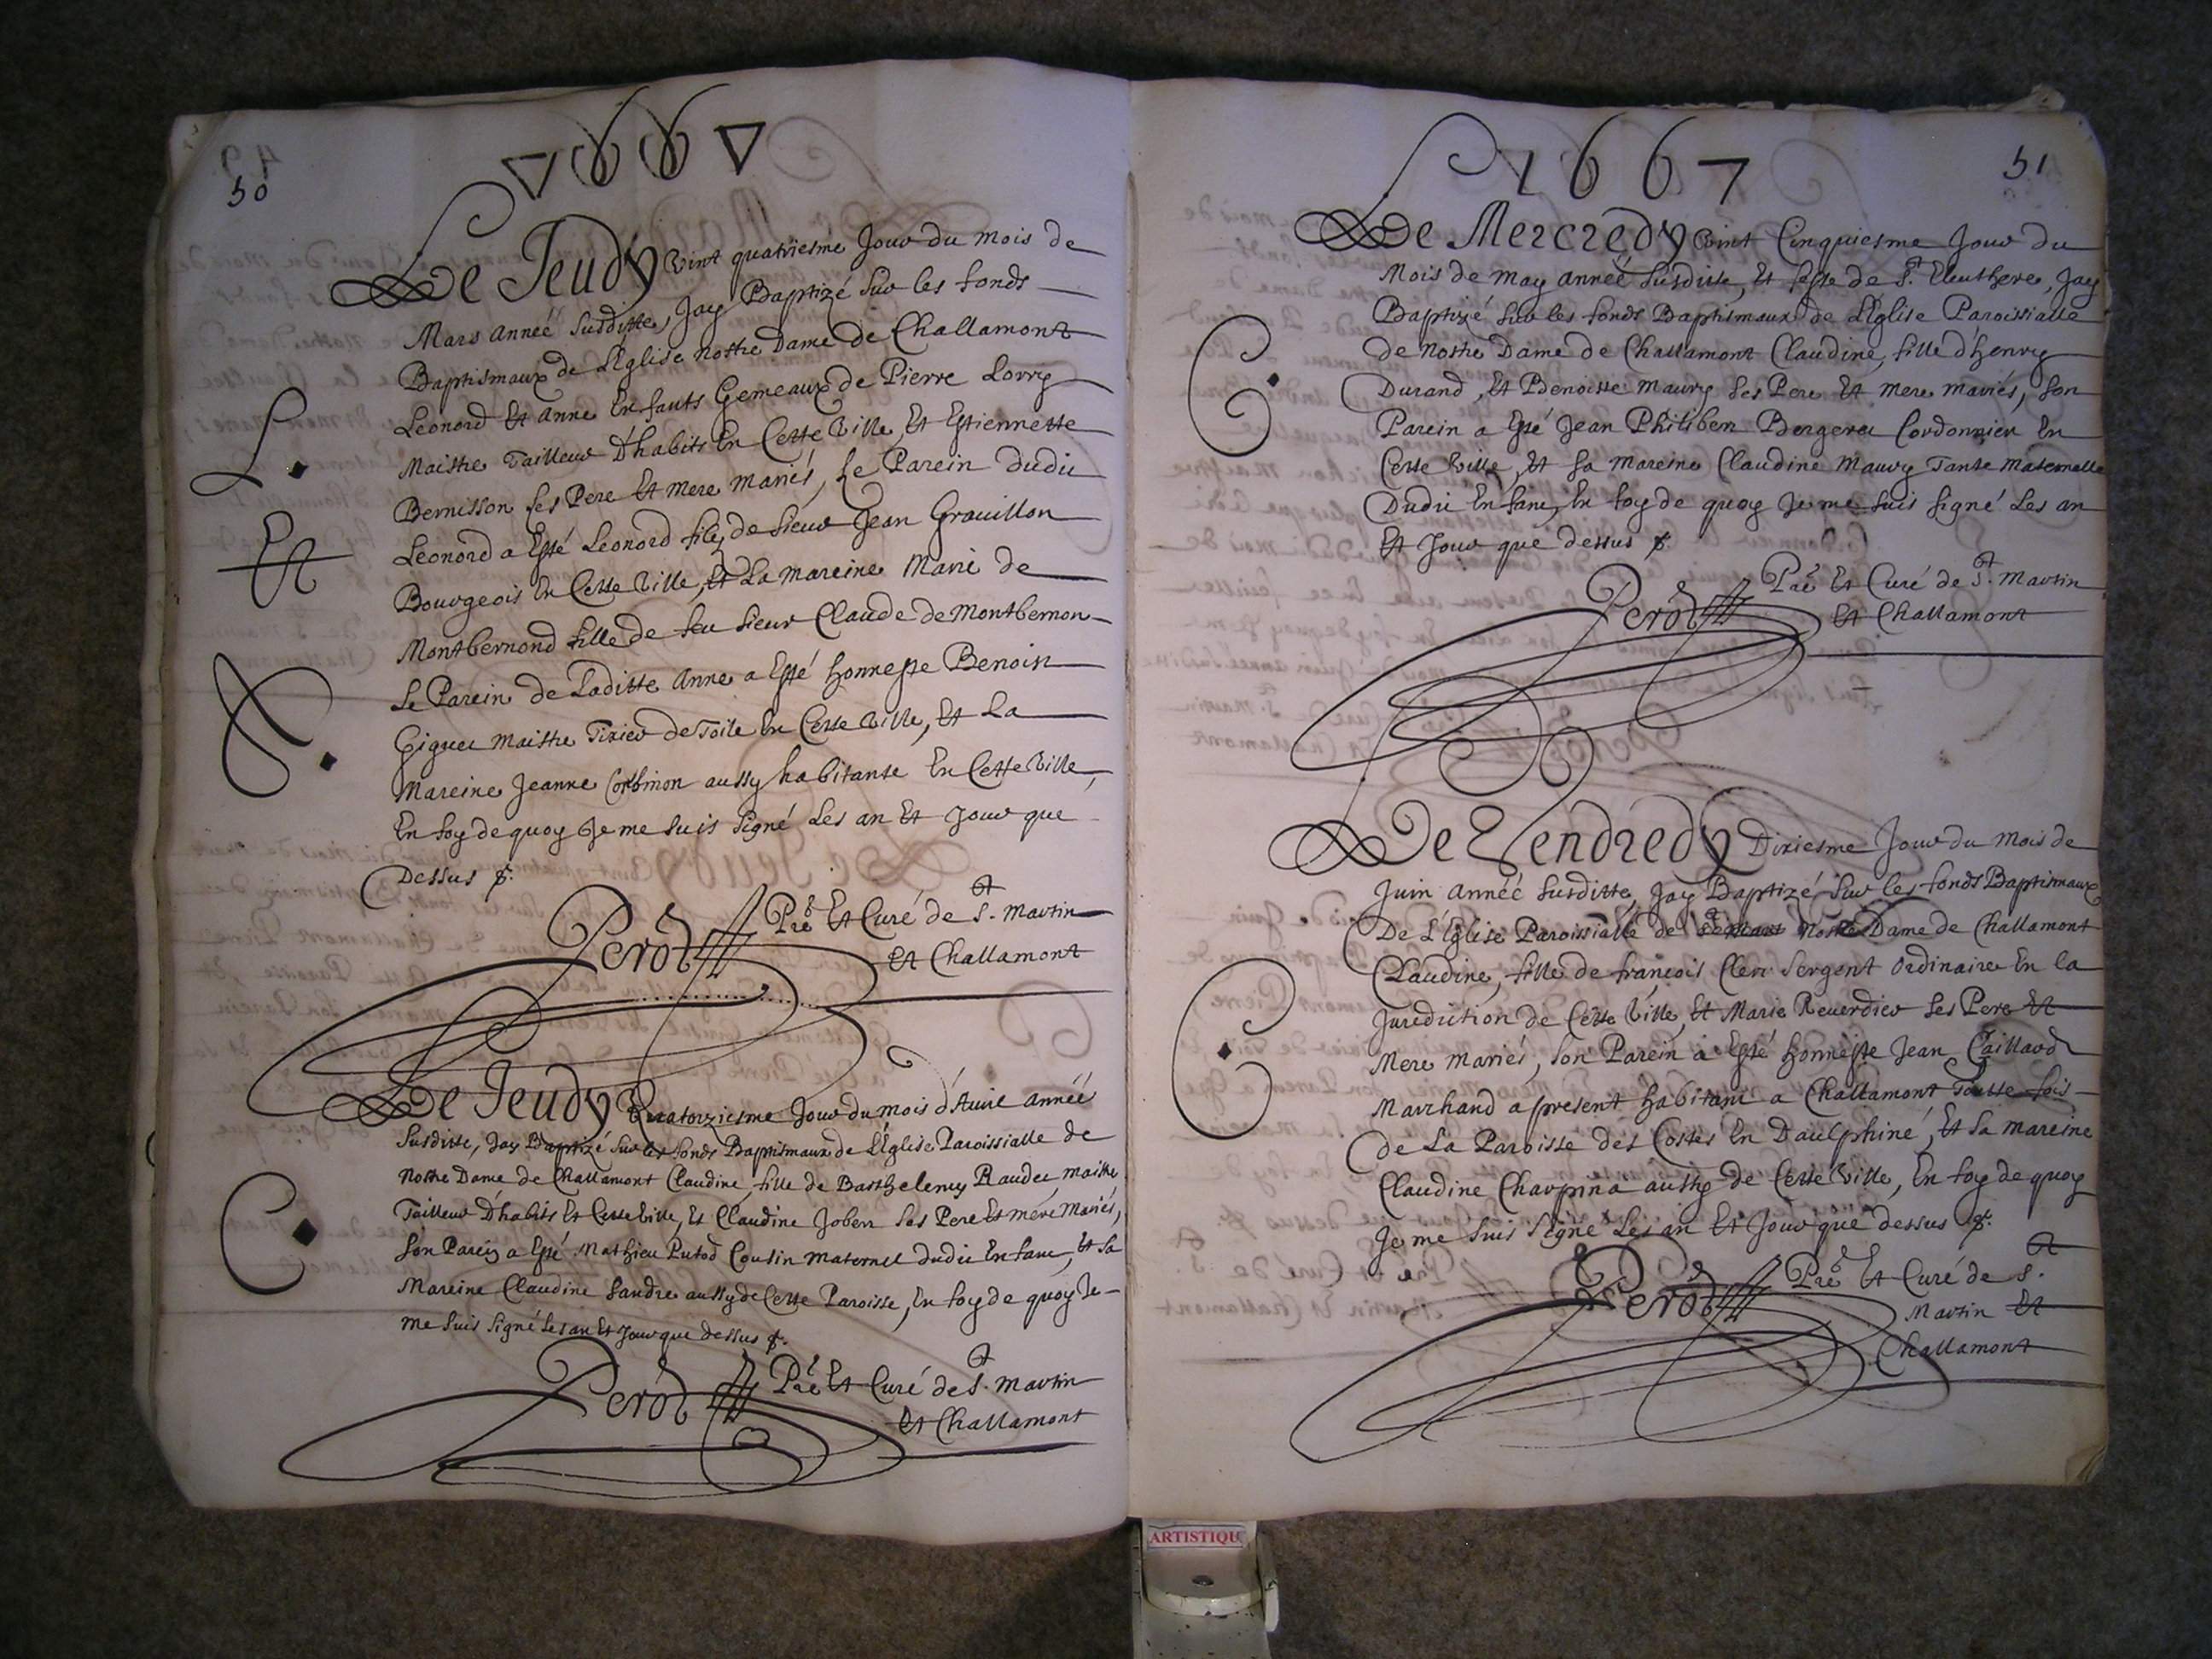 50
1667
Le Jeudy vint quatriesme Jour du mois de
Mars année susditte, Jay Baptizé sur les fonds
Baptismaux de L'Église nostre Dame de Challamont
Leonord Et Anne Enfants Gemeaux de Pierre Lorry
Maistre Tailleur D'habits En Cette Ville, Et Estiennette
Bernisson ses Pere Et Mere mariés, Le Parein dudit
Leonord a Esté Leonord fils de sieur Jean Grauillon
Bourgeois En Cette Ville, Et La Mareine Marie de
Montbernond fille de feu sieur Claude de Montbernon
Le Parein de Laditte Anne a Esté honneste Benoist
Maistre Tixier de Toile En Cette Ville, Et La
Mareine Jeanne aussy habitante En Cette Ville,
En foy de quoy Je me suis signé Les an Et Jour que
Dessus
L.
Et
A.
Perod Pre Et Curé de St. Martin
Et Challamont
Le Jeudy Quatorziesme Jour du mois d'Auril année
susditte, Jay Baptizé sur les fonds Baptismaux de L'Église Paroissialle de
Nostre Dame de Challamont Claudine, fille de Barthelemy Raudet, maistre
Tailleur D'habits Et Cette Ville, Et Claudine Jobert ses Pere Et mere Mariés,
son Parein a Esté Mathieu Putod Cousin Maternel dudit Enfant, Et sa
Mareine Claudine Sandre aussy de Cette Paroisse, En foy de quoy Je
me suis signé Les an Et Jour que dessus
C.
Perod Pre Et Curé de St. Martin
Et Challamont
51
1667
Le Mercredy vint Cinquiesme Jour du
Mois de May année susditte, Et feste de St. Eleuthere, Jay
Baptizé sur les fonds Baptismaux de L'Église Paroissialle
de Nostre Dame de Challamont Claudine, fille d'henry
Durand, Et Benoiste Maury ses Pere Et Mere mariés, son
Parein a Esté Jean Philibert Bergeret Cordonnier En
Cette Ville, Et sa Mareine Claudine Maury Tante Maternelle
Dudit Enfant, En foy de quoy Je me suis signé Les an
Et Jour que dessus
C.
Perod Pre Et Curé de St. Martin
Et Challamont
Le Vendredy Dixiesme Jour du Mois de
Juin année susditte, Jay Baptizé sur les fonds Baptismaux
De L'Église Paroissialle de Nostre Dame de Challamont
Claudine, fille de françois Clerc sergent ordinaire En La
Jurediction de Cette Ville, Et Marie Reuerdier ses Pere Et
Mere mariés, son Parein a Esté honneste Jean Caillaud
Marchand a present habitant a Challamont Toutte fois
de La Paroisse des Costes En Daulphiné, Et sa Mareine
Claudine Charpina aussy de Cette Ville, En foy de quoy
Je me suis signé Les an Et Jour que dessus
C.
Perod Pre Et Curé de St.
Martin Et
Challamont
ARTISTIQU